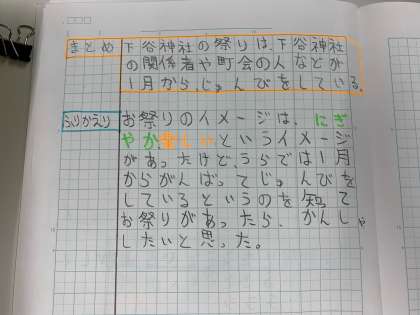 まとめ
下谷神社の祭りは、下谷神社
の関係者や町会の人などが
1月から、じゅんびをしている。
ふりかえり
お祭りのイメージは、にぎ
やか楽しいというイメージ
があったけど、うらでは1月
からがんばってじゅんびを
しているというのを知って
お祭りがあったら、かんしゃ
したいと思った。